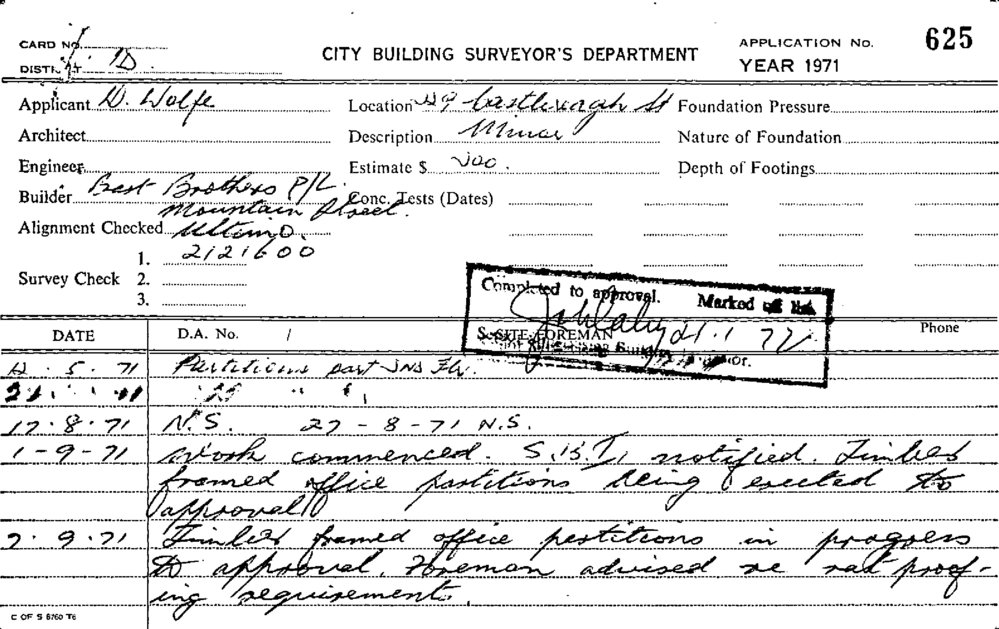 CARD No.
DISTRICT D
CITY BUILDING SURVEYOR'S DEPARTMENT
APPLICATION No. 625
YEAR 1971
Applicant D. Wolfe
Location 229 Castlereagh St
Foundation Pressure
Architect
Description Minor
Nature of Foundation
Engineer
Estimate $ 200.
Depth of Footings
Builder Brothers P/L
Mountain Street.
Conc. Tests (Dates)
Alignment Checked Ultimo.
1. 2121600
Survey Check 2.
3.
Completed to approval. Marked off
SITE FOREMAN 21.1.72
DATE
D.A. No. /
Phone
12.5.71 Partitions part 2nd Flr.
17.8.71 N.S. 27-8-71 N.S.
1-9-71 Work commenced. S.B.I. notified. Timber
framed office partitions being erected to
approval
7.9.71 Timber framed office partitions in progress
to approval. Foreman advised re rat proof-
ing requirements.
C OF S 8760 T6